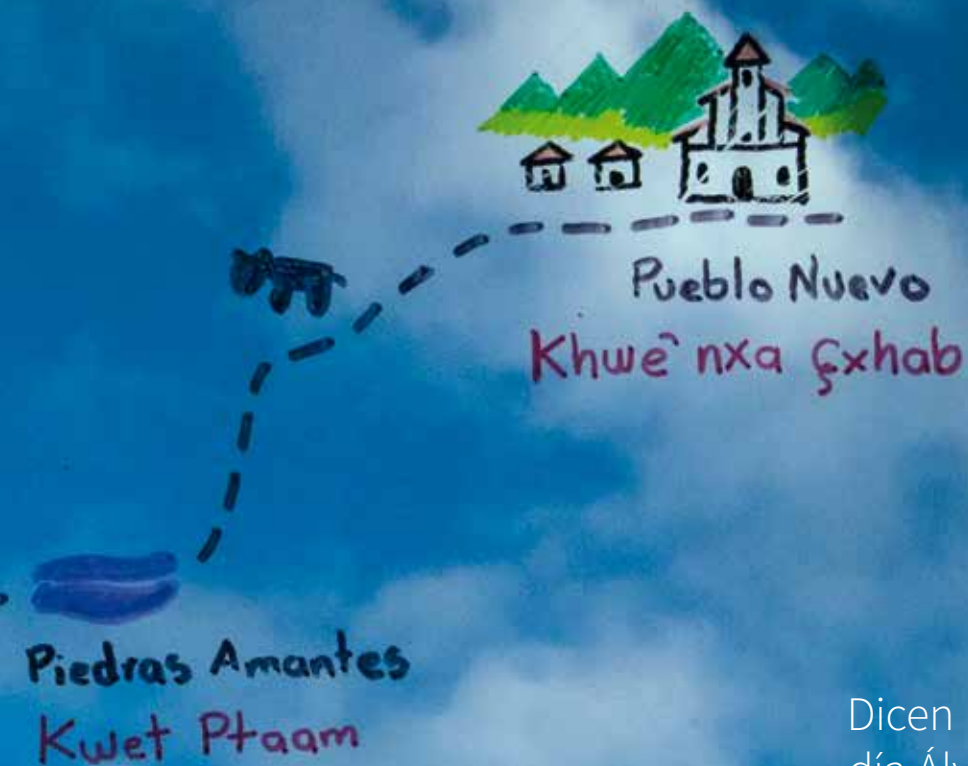 Pueblo Nuevo
Khwe` nxa çxhab
Piedras Amantes
Kwet Ptaam
Dicen
día Álv